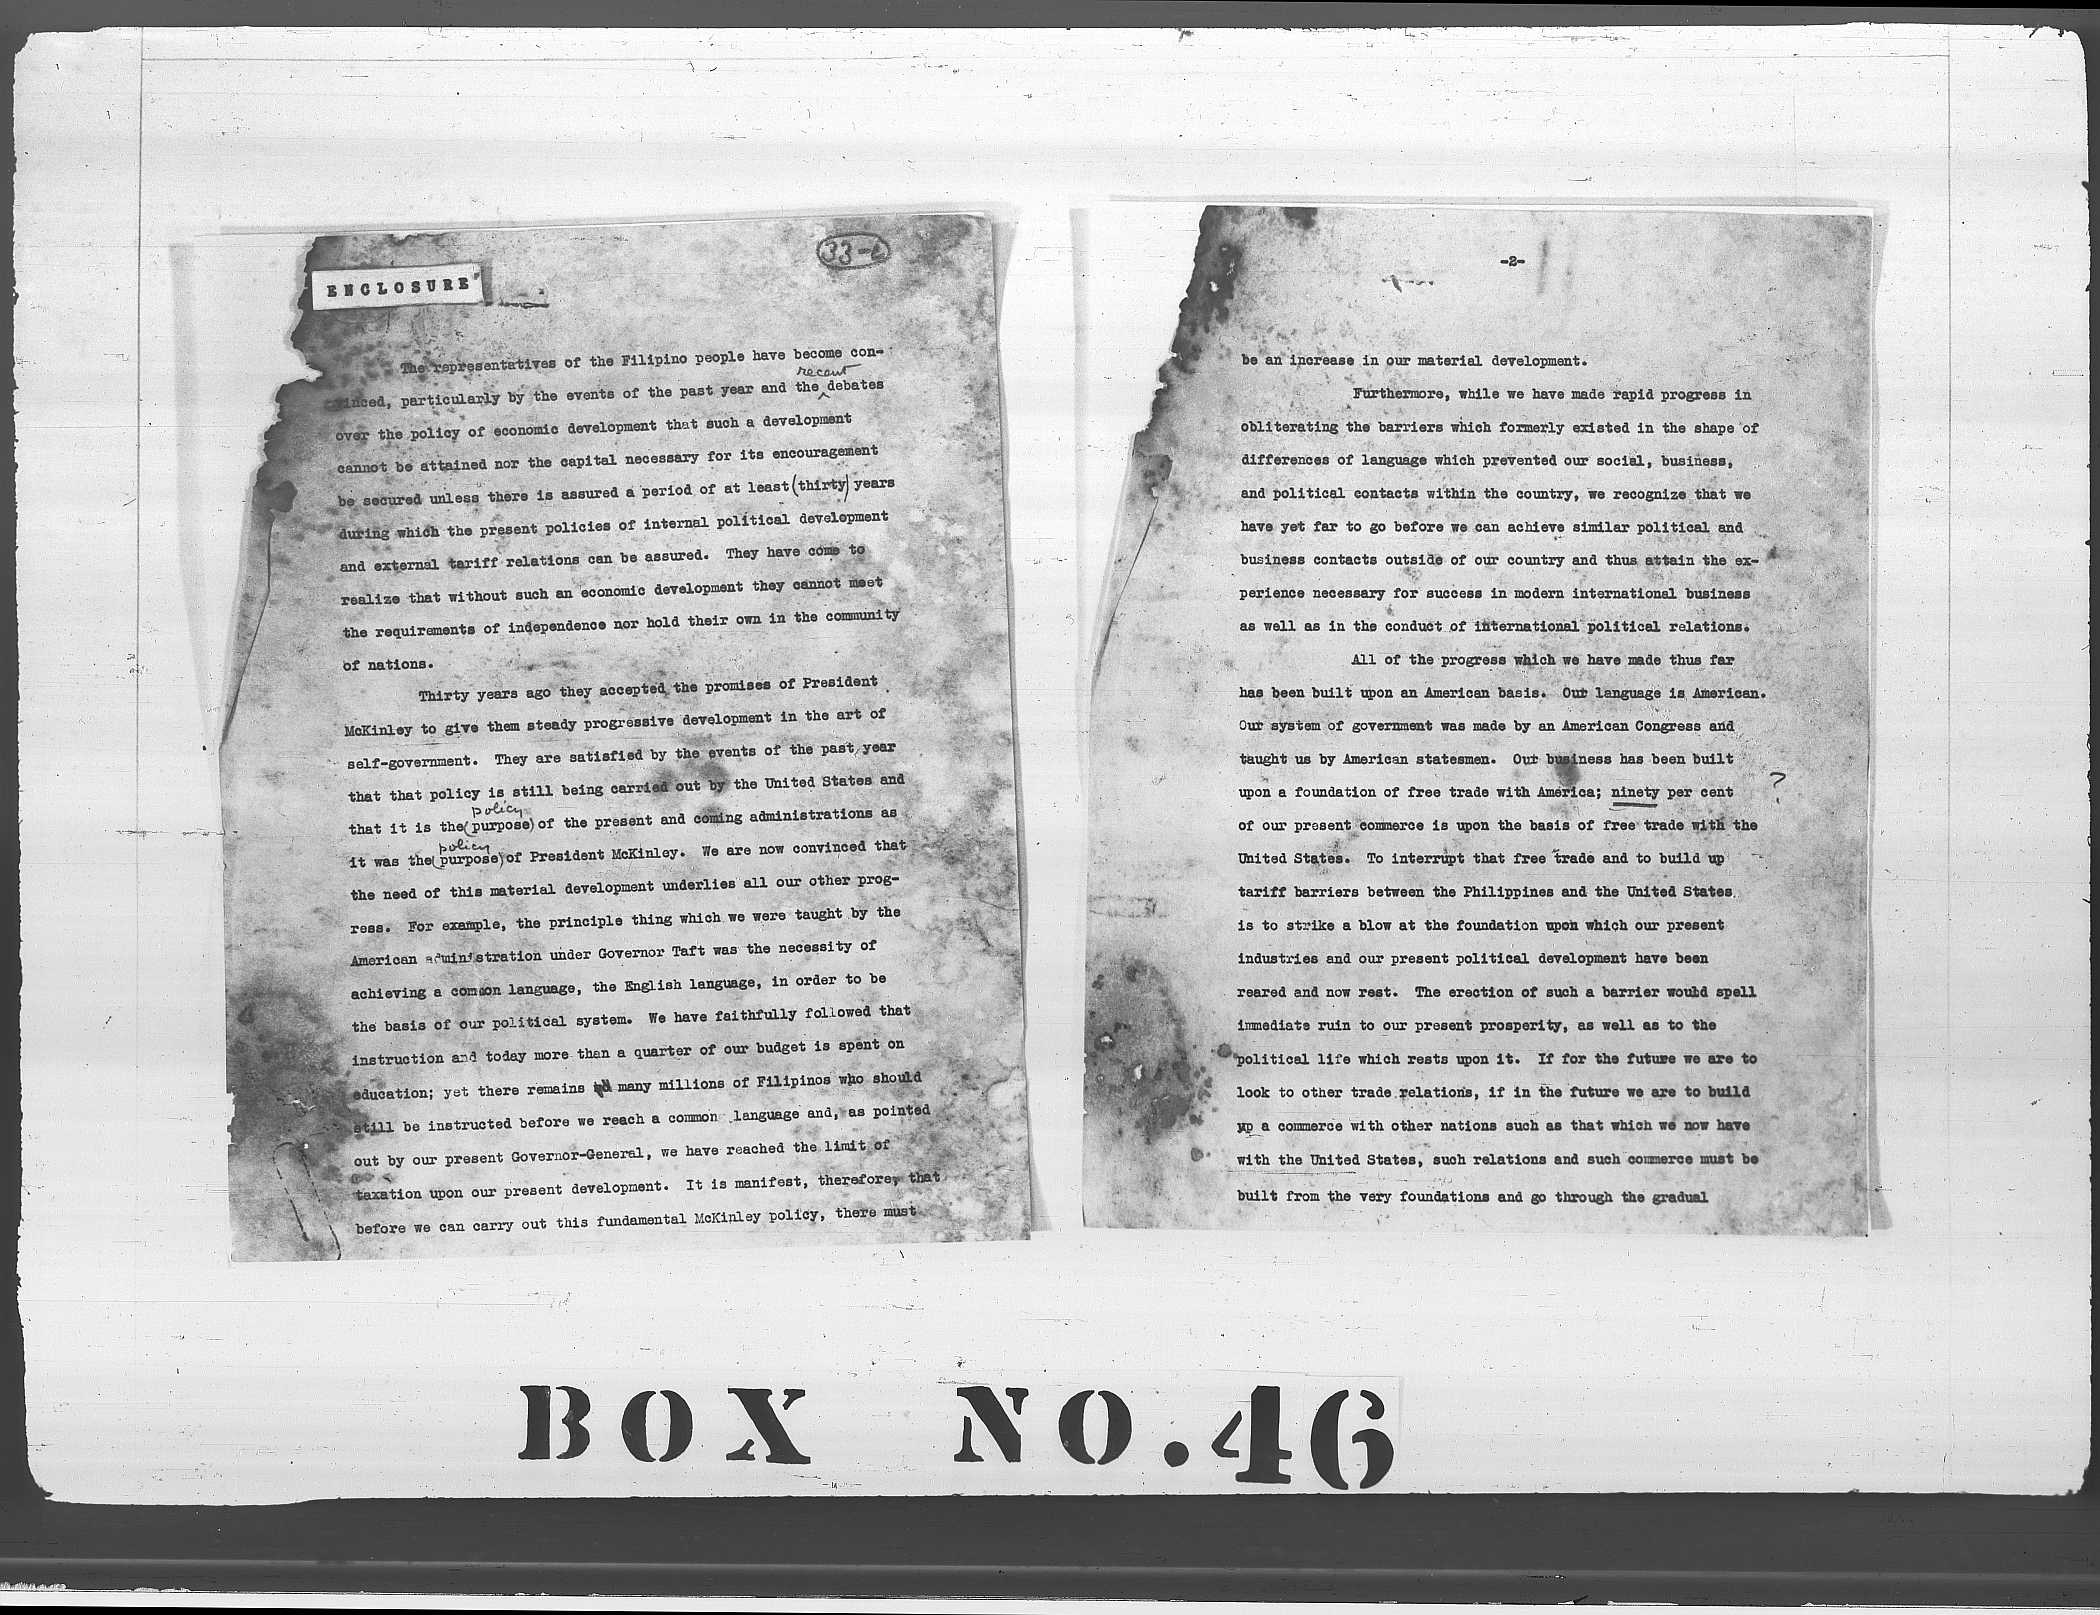 33-
ENCLOSURE
The representatives of the Filipino people have become con-
recent
vinced, particularly by the events of the past year and the debates
over the policy of economic development that such a development
cannot be attained nor the capital necessary for its encouragement
be secured unless there is assured a period of at least (thirty) years
during which the present policies of internal political development
and external tariff relations can be assured. They have come to
realize that without such an economic development they cannot meet
the requirements of independence nor hold their own in the community
of nations.
Thirty years ago they accepted the promises of President
McKinley to give them steady progressive development in the art of
self-government. They are satisfied by the events of the past year
that that policy is still being carried out by the United States and
policy
that it is the (purpose) of the present and coming administrations as
policy
it was the (purpose) of President McKinley. We are now convinced that
the need of this material development underlies all our other prog-
ress. For example, the principle thing which we were taught by the
American administration under Governor Taft was the necessity of
achieving a common language, the English language, in order to be
the basis of our political system. We have faithfully followed that
instruction and today more than a quarter of our budget is spent on
education; yet there remains many millions of Filipinos who should
still be instructed before we reach a common language and, as pointed
out by our present Governor-General, we have reached the limit of
taxation upon our present development. It is manifest, therefore, that
before we can carry out this fundamental McKinley policy, there must
-2-
be an increase in our material development.
Furthermore, while we have made rapid progress in
obliterating the barriers which formerly existed in the shape of
differences of language which prevented our social, business,
and political contacts within the country, we recognize that we
have yet far to go before we can achieve similar political and
business contacts outside of our country and thus attain the ex-
perience necessary for success in modern international business
as well as in the conduct of international political relations.
All of the progress which we have made thus far
has been built upon an American basis. Our language is American.
Our system of government was made by an American Congress and
taught us by American statesmen. Our business has been built
upon a foundation of free trade with America; ninety per cent ?
of our present commerce is upon the basis of free trade with the
United States. To interrupt that free trade and to build up
tariff barriers between the Philippines and the United States
is to strike a blow at the foundation upon which our present
industries and our present political development have been
reared and now rest. The erection of such a barrier would spell
immediate ruin to our present prosperity, as well as to the
political life which rests upon it. If for the future we are to
look to other trade relations, if in the future we are to build
up a commerce with other nations such as that which we now have
with the United States, such relations and such commerce must be
built from the very foundations and go through the gradual
BOX NO. 46